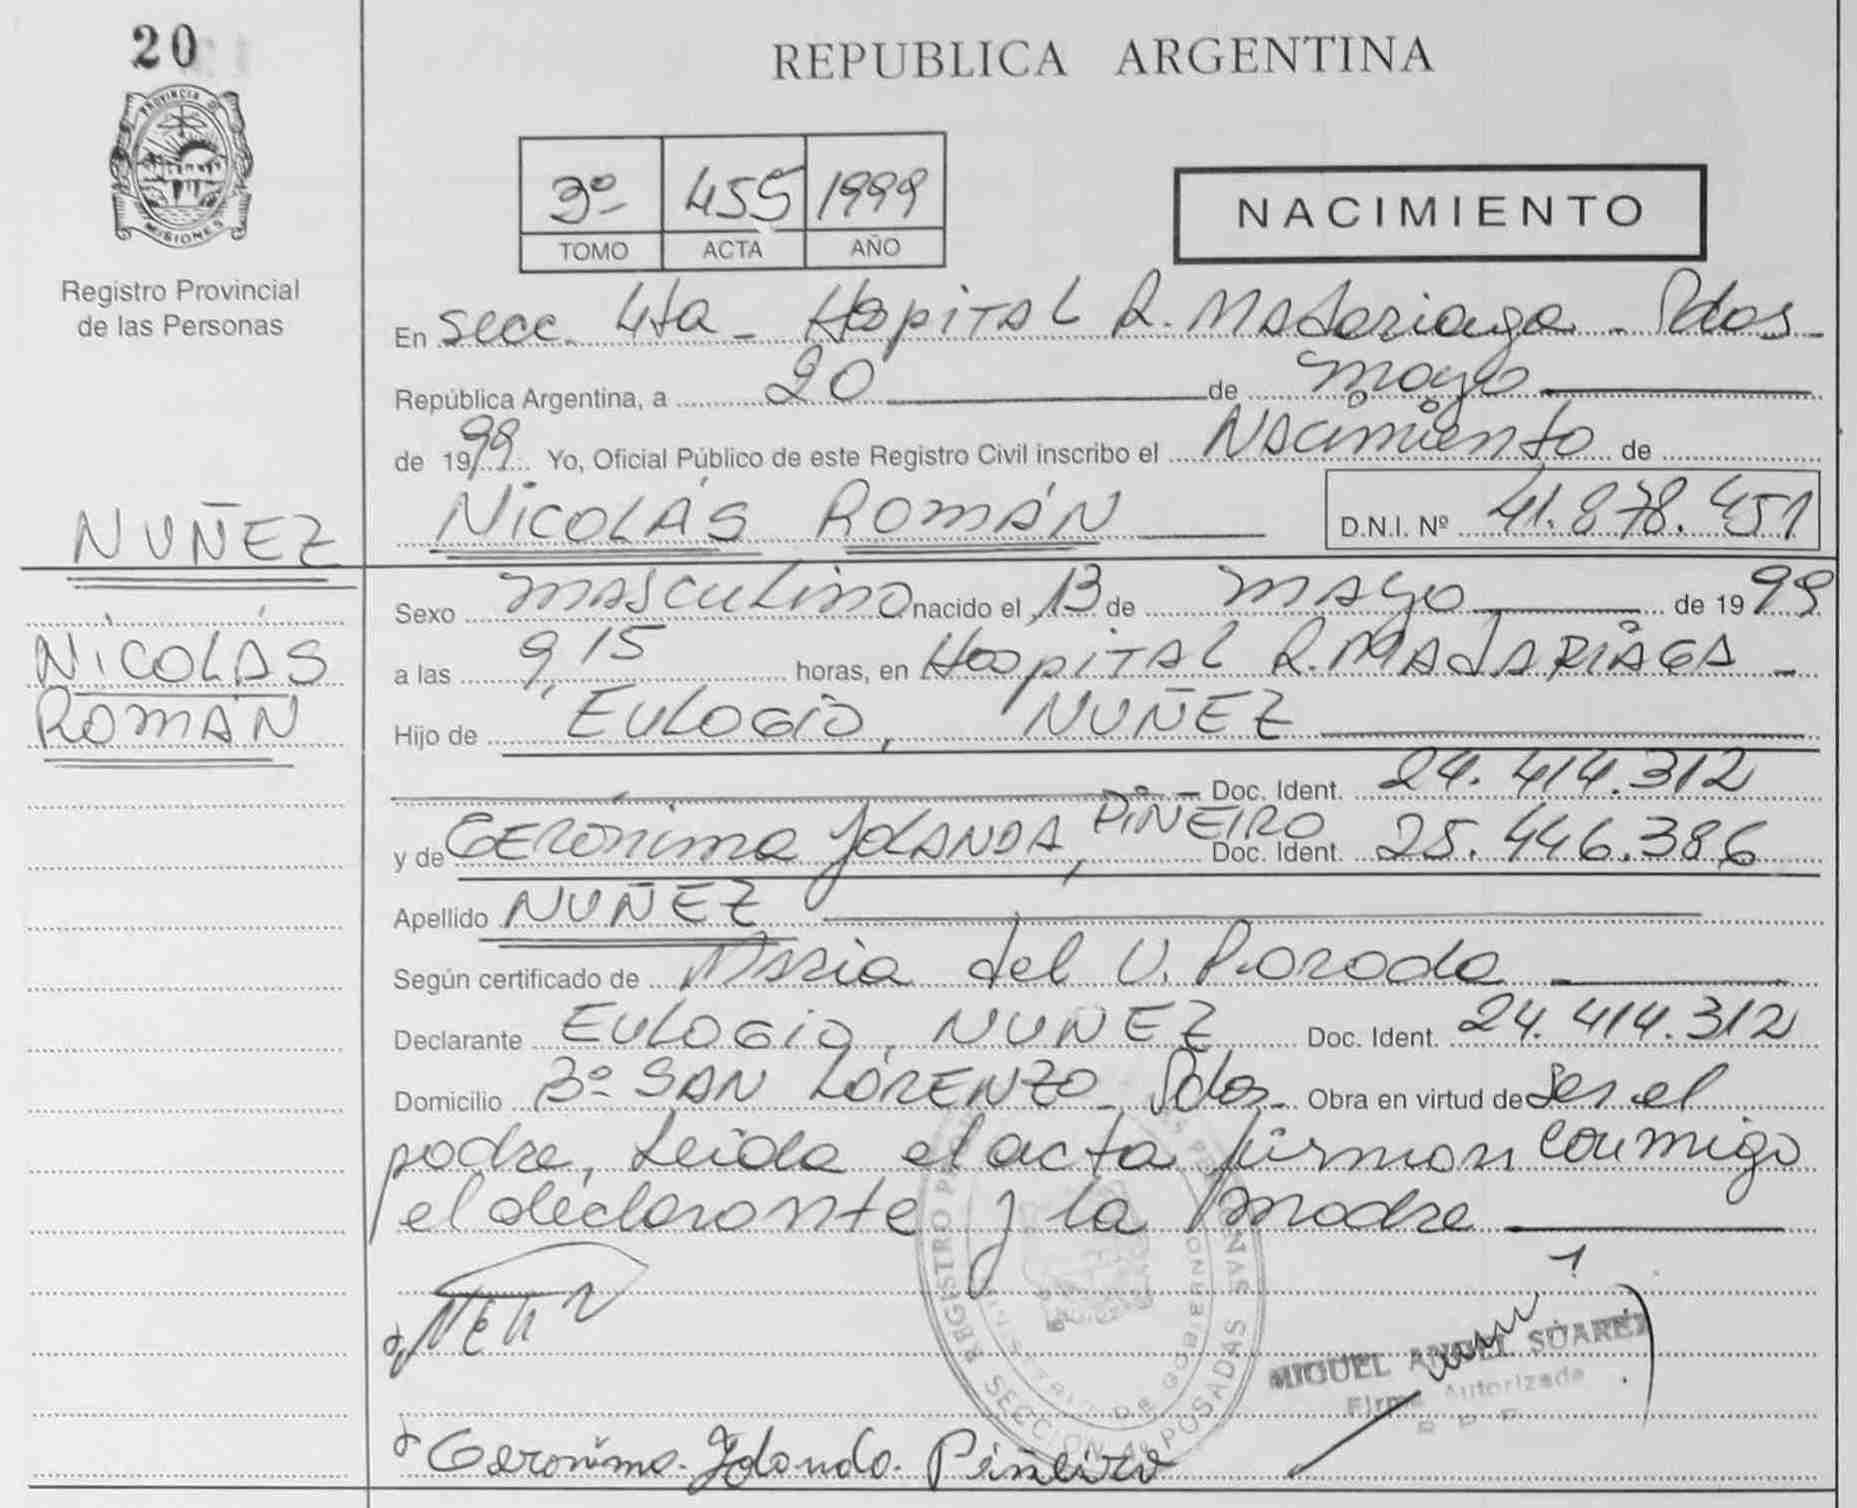 20
REPUBLICA ARGENTINA
PROVINCIA DE
MISIONES
Registro Provincial
de las Personas
3º 455 1999
TOMO ACTA AÑO
NACIMIENTO
En secc. 4ta - Hospital R. Madariaga - Pdas -
República Argentina, a 20 de mayo
de 1999. Yo, Oficial Público de este Registro Civil inscribo el Nacimiento de
NICOLÁS ROMÁN D.N.I. Nº 41.878.451
NUÑEZ
NICOLÁS
ROMÁN
Sexo masculino nacido el 13 de mayo de 1999
a las 9,15 horas, en Hospital R. MADARIAGA -
Hijo de EULOGIO, NUÑEZ
Doc. Ident. 24.414.312
y de GERÓNIMA YOLANDA, PIÑEIRO Doc. Ident. 25.446.386
Apellido NUÑEZ
Según certificado de Maria del V.
Declarante EULOGIO, NUÑEZ Doc. Ident. 24.414.312
Domicilio Bº SAN LORENZO - Pdas - Obra en virtud de ser el
padre, Leida el acta firman conmigo
el declarante y la madre
REGISTRO PROVINCIAL DE LAS PERSONAS
MINISTERIO DE GOBIERNO
SECCION 4ª POSADAS
MIGUEL ANGEL SUAREZ
Firma Autorizada
R P P
Geronima Yolanda Piñeiro